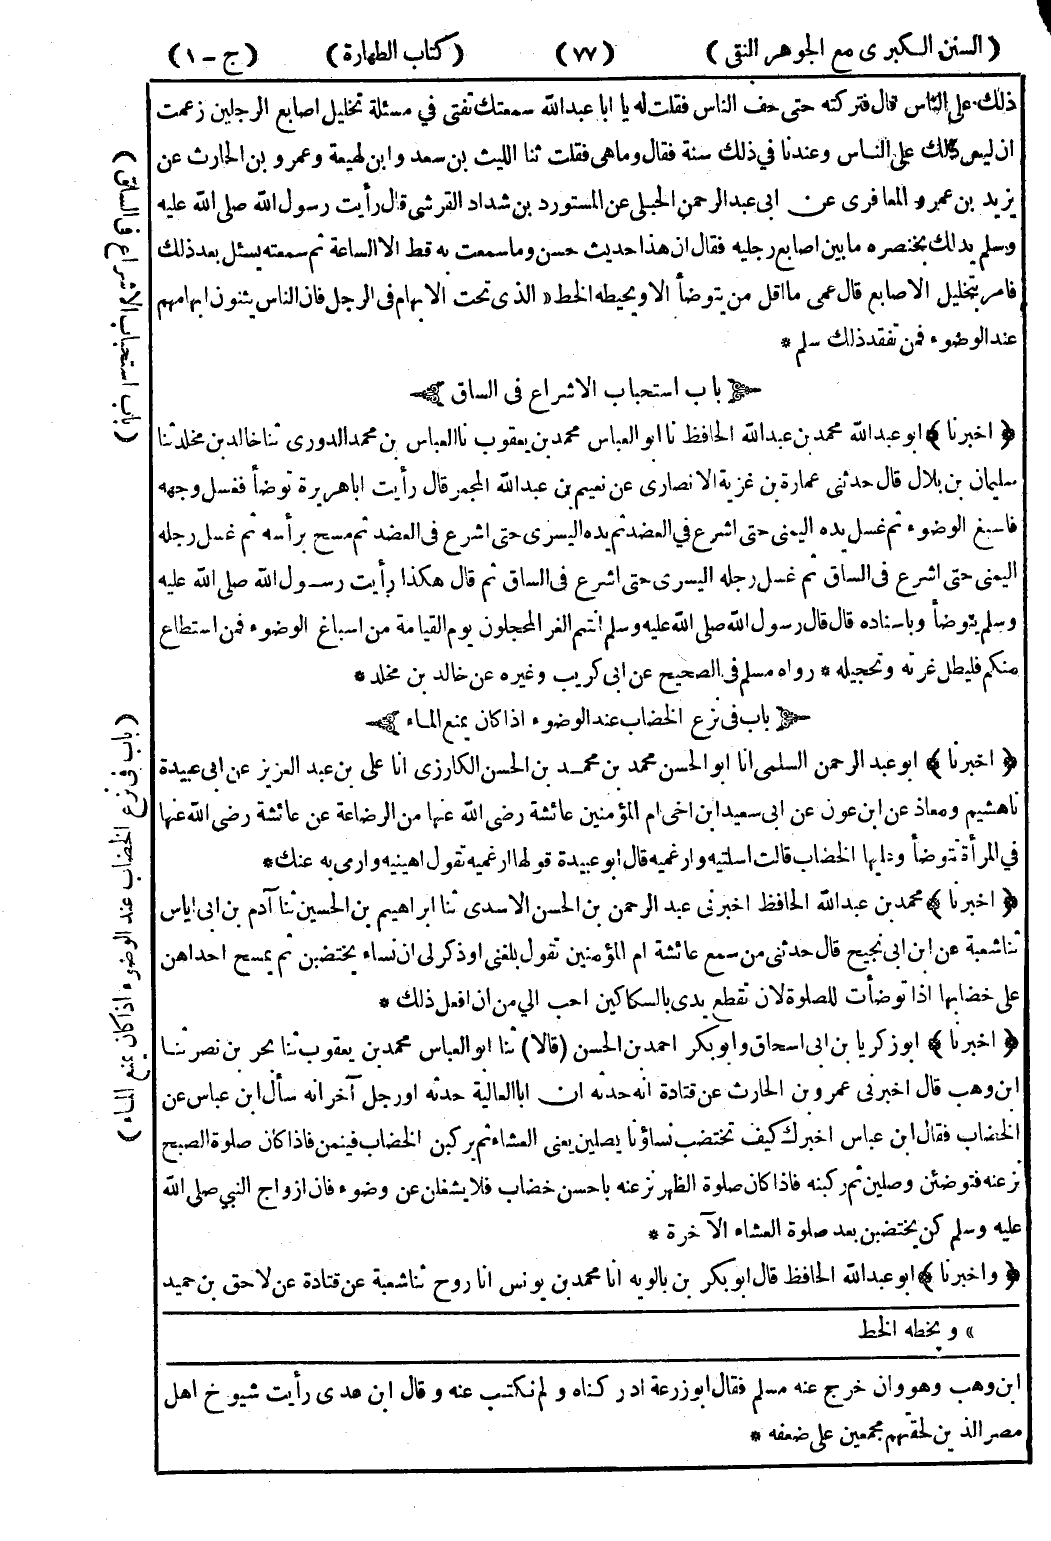 ( السنن الكبرى مع الجوهر النقى ) (٧٧) ( كتاب الطهارة ) ( ج - ١ )
ذلك على الناس قال فتركته حتى خف الناس فقلت له يا ابا عبدالله سمعتك تفتى في مسئلة تخليل اصابع الرجلين زعمت
ان ليس ذلك على الناس وعندنا في ذلك سنة فقال وما هى فقلت ثنا الليث بن سعد وابن لهيعة وعمرو بن الحارث عن
يزيد بن عمرو المعافرى عن ابى عبدالرحمن الحبلى عن المستورد بن شداد القرشى قال رأيت رسول الله صلى الله عليه
وسلم يدلك بخنصره ما بين اصابع رجليه فقال ان هذا حديث حسن وما سمعت به قط الا الساعة ثم سمعته يسئل بعد ذلك
فامر بتخليل الاصابع قال عمى ما اقل من يتوضأ الا ويحيطه الخط « الذى تحت الابهام فى الرجل فان الناس يثنون ابهامهم
عند الوضوء فمن تفقد ذلك سلم *
باب استحباب الاشراع فى الساق
﴿ اخبرنا ﴾ ابو عبدالله محمد بن عبدالله الحافظ نا ابو العباس محمد بن يعقوب نا العباس بن محمد الدورى ثنا خالد بن مخلد ثنا
سليمان بن بلال قال حدثنى عمارة بن غزية الانصارى عن نعيم بن عبدالله المجمر قال رأيت ابا هريرة توضأ فغسل وجهه
فاسبغ الوضوء ثم غسل يده اليمنى حتى اشرع في العضد ثم يده اليسرى حتى اشرع فى العضد ثم مسح برأسه ثم غسل رجله
اليمنى حتى اشرع فى الساق ثم غسل رجله اليسرى حتى اشرع فى الساق ثم قال هكذا رأيت رسول الله صلى الله عليه
وسلم يتوضأ وباسناده قال قال رسول الله صلى الله عليه وسلم انتم الغر المحجلون يوم القيامة من اسباغ الوضوء فمن استطاع
منكم فليطل غرته وتحجيله * رواه مسلم فى الصحيح عن ابى كريب وغيره عن خالد بن مخلد *
باب فى نزع الخضاب عند الوضوء اذا كان يمنع الماء
﴿ اخبرنا ﴾ ابو عبد الرحمن السلمى انا ابو الحسن محمد بن محمد بن الحسن الكارزى انا على بن عبد العزيز عن ابى عبيدة
نا هشيم ومعاذ عن ابن عون عن ابى سعيد ابن اخى ام المؤمنين عائشة رضى الله عنها من الرضاعة عن عائشة رضى الله عنها
في المرأة تتوضأ وعليها الخضاب قالت اسلتيه وارغميه قال ابو عبيدة قولها ارغميه تقول اهينيه وارى به عنك *
﴿ اخبرنا ﴾ محمد بن عبدالله الحافظ اخبرنى عبد الرحمن بن الحسن الاسدى ثنا ابراهيم بن الحسين ثنا آدم بن ابى اياس
ثنا شعبة عن ابن ابى نجيح قال حدثنى من سمع عائشة ام المؤمنين تقول بلغنى او ذكر لى ان نساء يختضبن ثم يمسح احداهن
على خضابها اذا توضأت للصلوة لان تقطع يدى بالسكاكين احب الي من ان افعل ذلك *
﴿ اخبرنا ﴾ ابو زكريا بن ابى اسحاق وابو بكر احمد بن الحسن (قالا) ثنا ابو العباس محمد بن يعقوب ثنا بحر بن نصر ثنا
ابن وهب قال اخبرنى عمرو بن الحارث عن قتادة انه حدثه ان ابا العالية حدثه او رجل آخر انه سأل ابن عباس عن
الخضاب فقال ابن عباس اخبرك كيف تختضب نساؤنا يصلين يعنى العشاء ثم يركبن الخضاب فينمن فاذا كان صلوة الصبح
نزعنه فتوضئن وصلين ثم ركبنه فاذا كان صلوة الظهر نزعنه باحسن خضاب فلا يشغلن عن وضوء فان ازواج النبي صلى الله
عليه وسلم كن يختضبن بعد صلوة العشاء الآخرة *
﴿ واخبرنا ﴾ ابو عبدالله الحافظ قال ابو بكر بن بالويه انا محمد بن يونس انا روح ثنا شعبة عن قتادة عن لاحق بن حميد
» و يخطه الخط
ابن وهب وهو وان خرج عنه مسلم فقال ابو زرعة ادركناه ولم نكتب عنه وقال ابن عدى رأيت شيوخ اهل
مصر الذين لحقتهم مجمعين على ضعفه *
( باب استحباب الاشراع فى الساق )
( باب فى نزع الخضاب عند الوضوء اذا كان يمنع الماء )